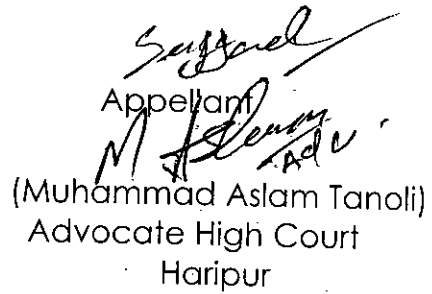 Appellant
M Aslam
Adv.
(Muhammad Aslam Tanoli)
Advocate High Court
Haripur